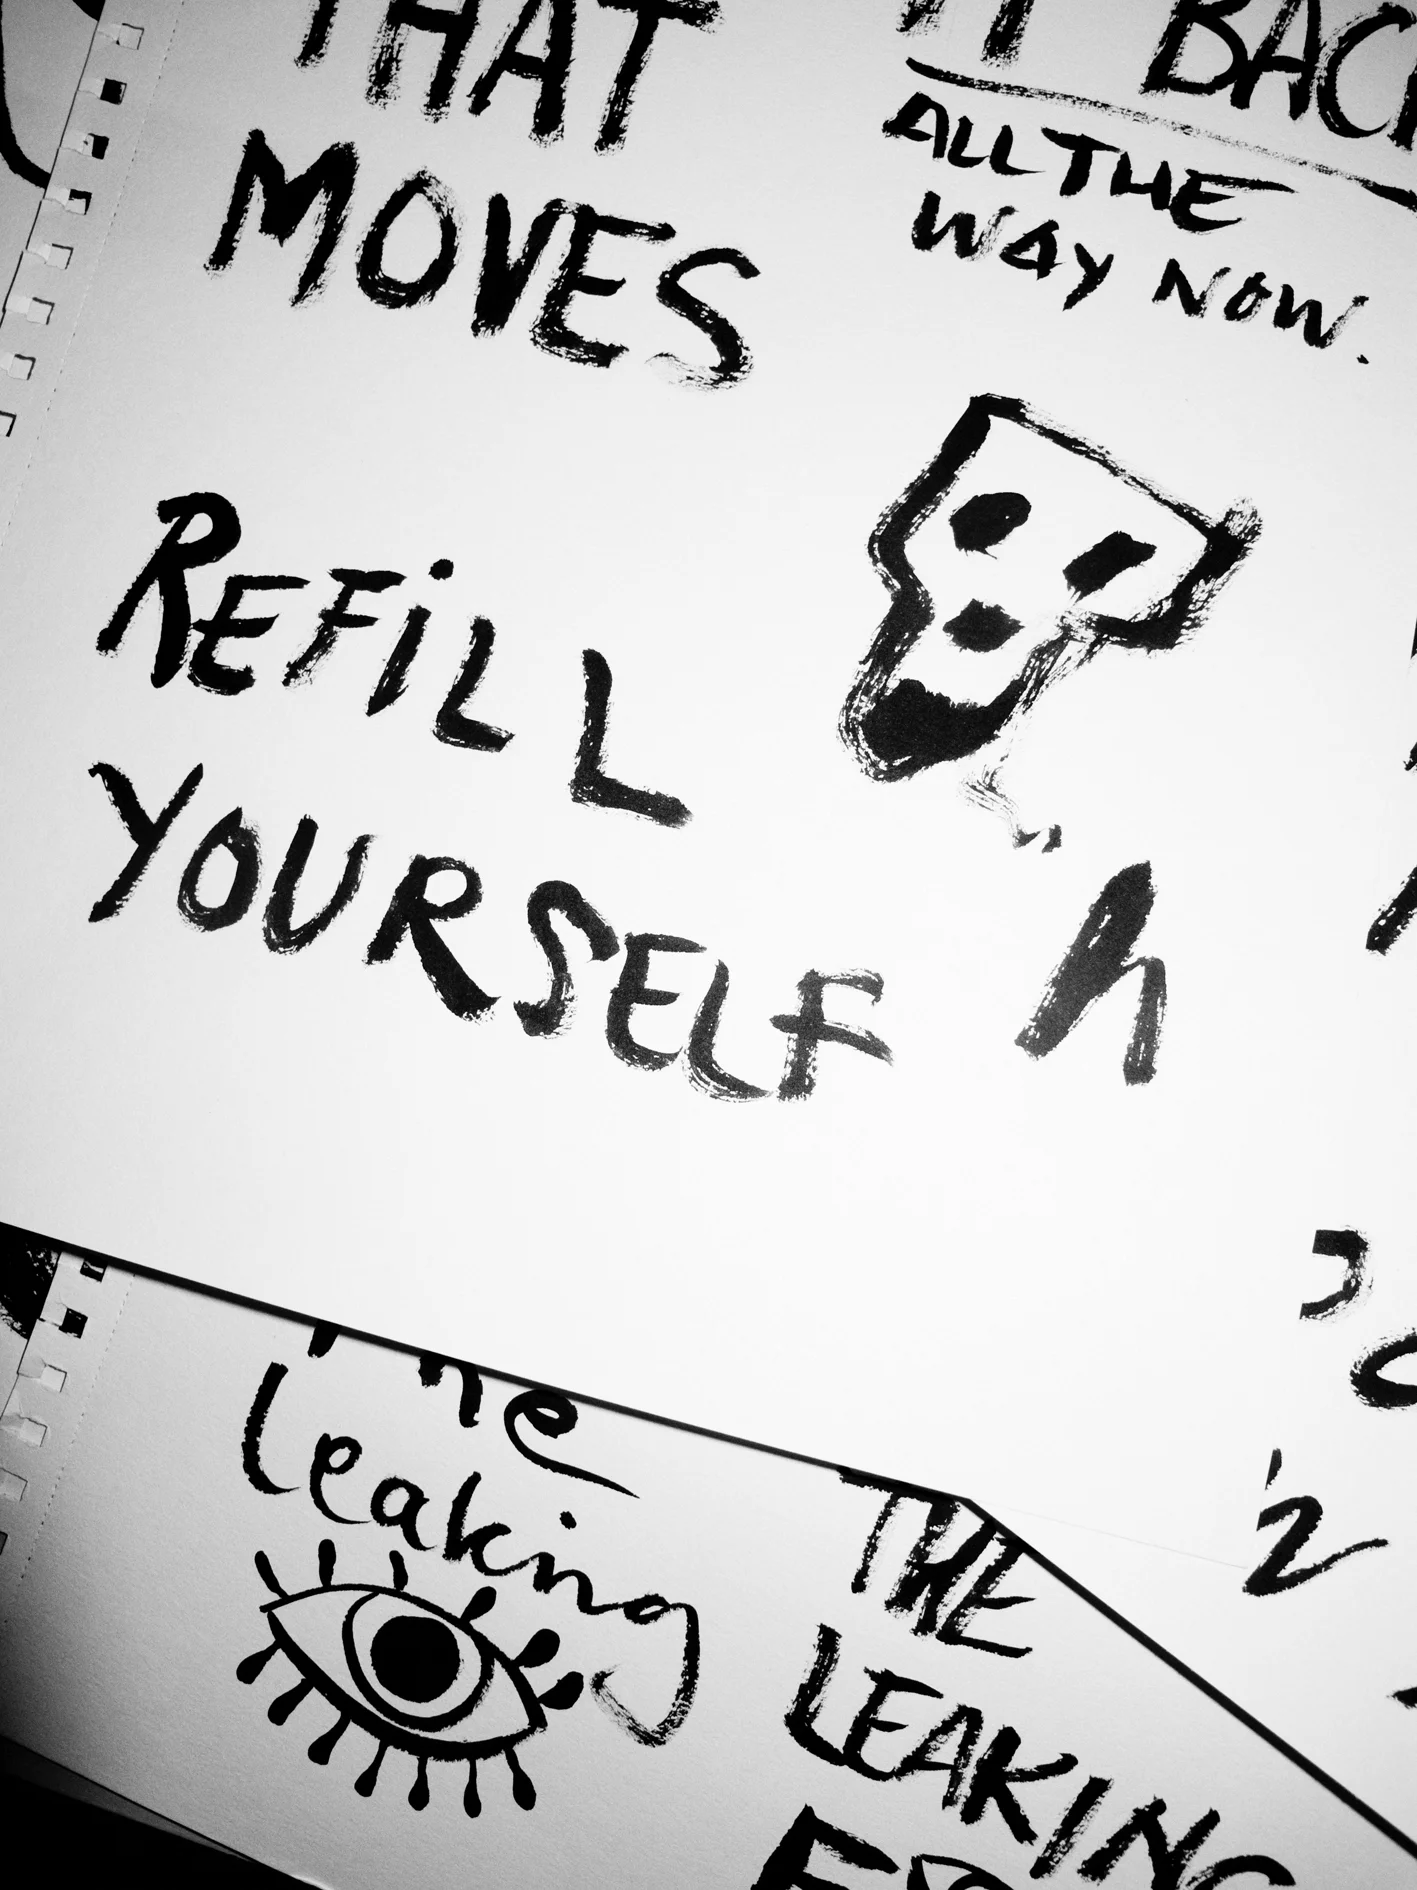 THAT
MOVES
IT BACK
ALL THE
WAY NOW.
REFiLL
YOURSELF
"h
The
leaking
THE
LEAKING